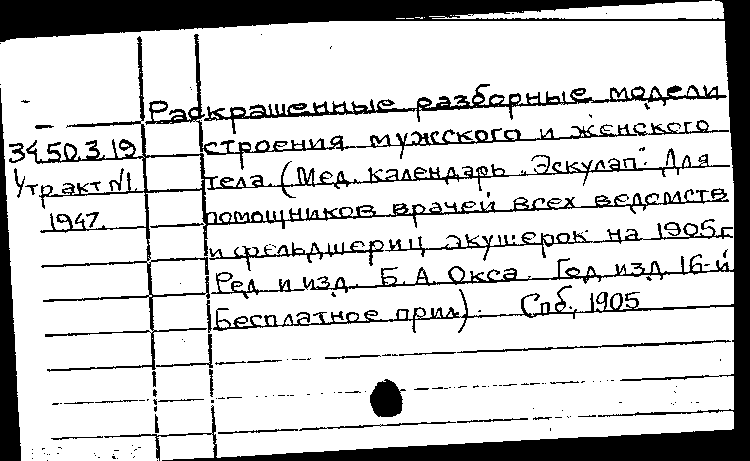 Раскрашенные разборные модели
34.50.3.19 строения мужского и женского
Утр. акт №1 тела. (Мед. календарь „Эскулап“. Для
1947. помощников врачей всех ведомств
и фельдшериц акушерок на 1905 г.
Ред. и изд. Б. А. Окса. Год изд. 16-й
Бесплатное прил.). Спб., 1905